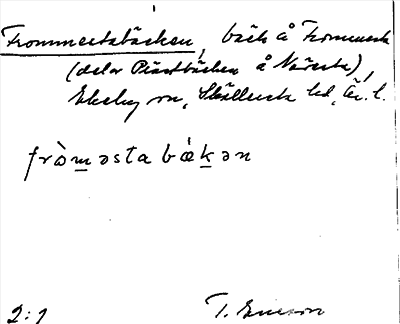 Frommestabäcken, bäck å Frommesta
(delar Prästbäcken å Närsta),
Ekeby sn, Sköllersta hd, Är. l.
fròm̲əsta bǽk̲ən
2:1 T. Ericson